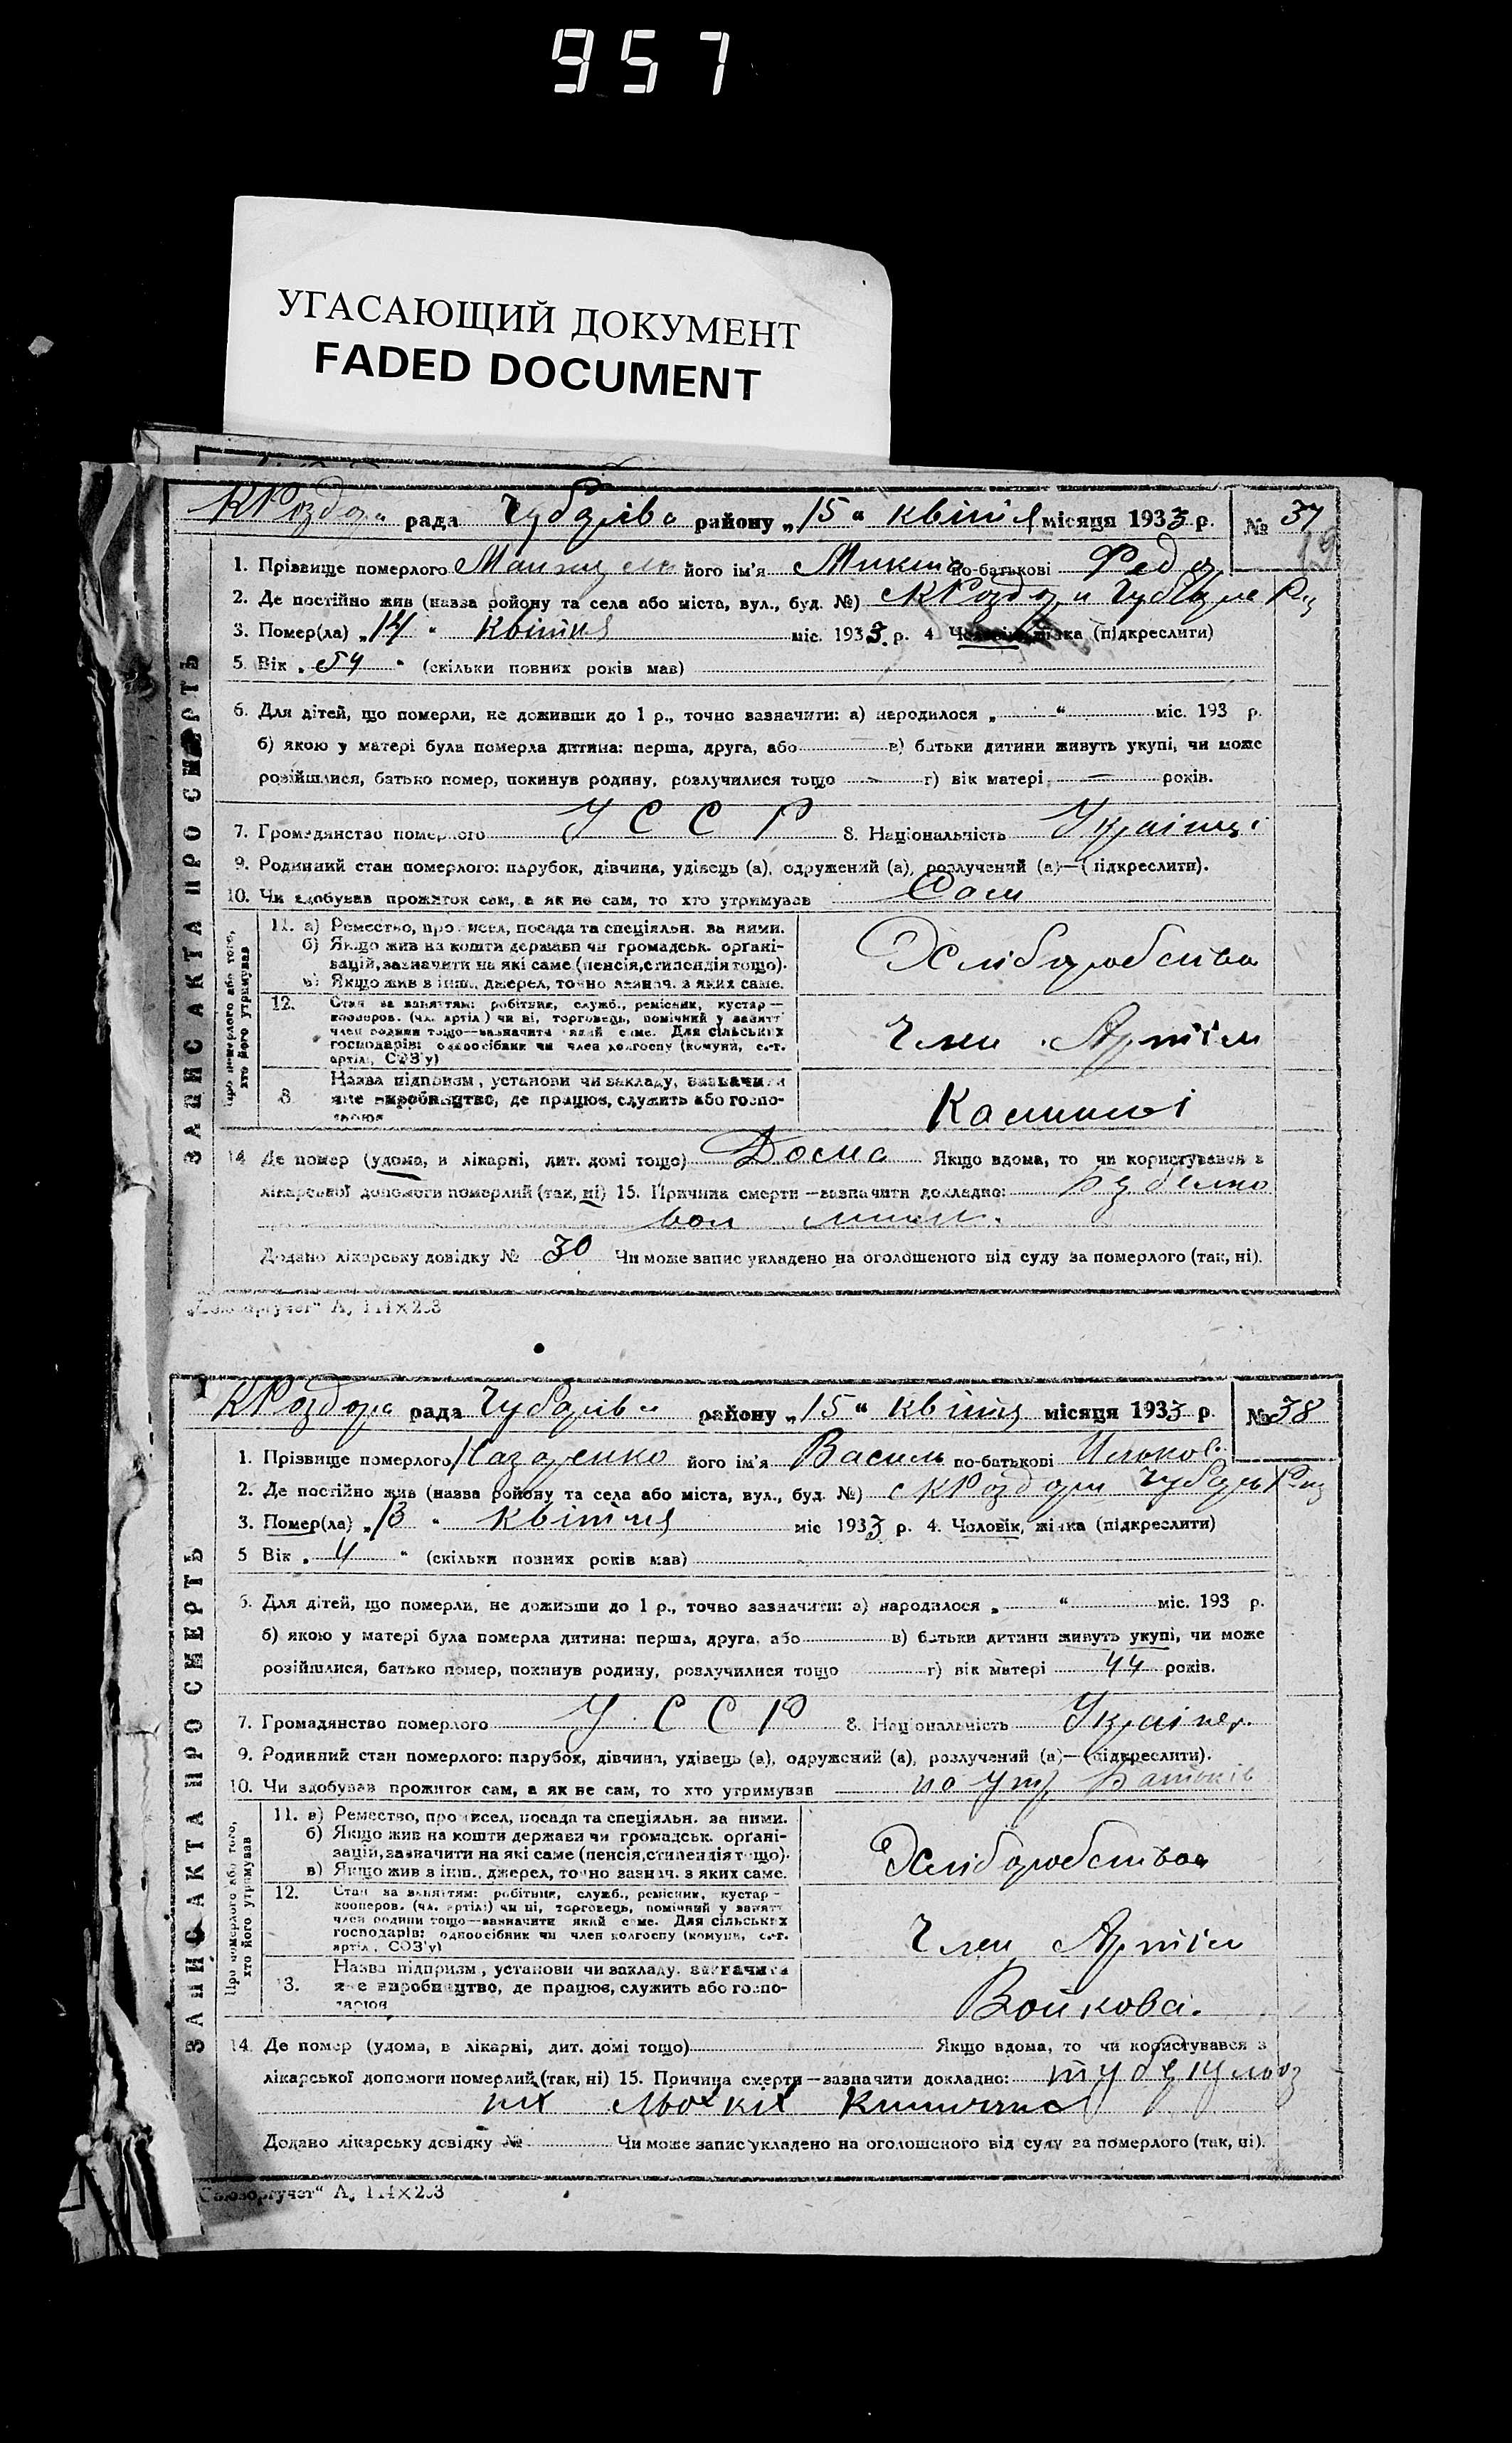 957
УГАСАЮЩИЙ ДОКУМЕНТ
FADED DOCUMENT
рада району „15“ квітня місяця 1933 р. № 37
19
1. Прізвище померлого його ім'я Микита по-батькові Федор
2. Де постійно жив (назва ройону та села або міста, вул., буд. №)
3. Помер(ла) „14“ квітня міс. 1933 р. 4. Чоловік, жінка (підкреслити)
5. Вік „54“ (скільки повних років мав)
6. Для дітей, що померли, не доживши до 1 р., точно зазначити: а) народилося „ “ міс. 193 р.
б) якою у матері була померла дитина: перша, друга, або в) батьки дитини живуть укупі, чи може
розійшлися, батько помер, покинув родину, розлучилися тощо г) вік матері — років.
7. Громадянство померлого УССР 8. Національність
9. Родинний стан померлого: парубок, дівчина, удівець (а), одружений (а), розлучений (а)—(підкреслити).
10. Чи здобував прожиток сам, а як не сам, то хто утримував Сам
ЗАПИС АКТА ПРО СМЕРТЬ
Про померлого або того, хто його утримував
11. а) Ремество, промисел, посада та спеціяльн. за ними.
б) Якщо жив на кошти держави чи громадськ. орґані-
зацій, зазначити на які саме (пенсія, стипендія тощо).
в) Якщо жив з інш. джерел, точно зазнач. з яких саме.
Хліборобство
12. Стан за заняттям: робітник, служб., ремісник, кустар—
кооперов. (чл. артілі) чи ні, торговець, помічний у занятті
член родини тощо—зазначити який саме. Для сільських
господарів: одноосібник чи член колгоспу (комуни, с.-г.
артілі, СОЗ'у)
Член Артіли
Назва підприєм., установи чи закладу, зазначити
яке виробництво, де працює, служить або госпо-
дарює
14. Де помер (удома, в лікарні, дит. домі тощо) Дома Якщо вдома, то чи користувався з
лікарської допомоги померлий (так, ні) 15. Причина смерти—зазначити докладно:
Додано лікарську довідку № 30 Чи може запис укладено на оголошеного від суду за померлого (так, ні).
„Союзоргучет“ А
рада району „15“ квітня місяця 1933 р. № 38
1. Прізвище померлого Назаренко його ім'я Василь по-батькові
2. Де постійно жив (назва ройону та села або міста, вул., буд. №)
3. Помер(ла) „13“ квітня міс 1933 р. 4. Чоловік, жінка (підкреслити)
5 Вік „4“ (скільки повних років мав)
6. Для дітей, що померли, не доживши до 1 р., точно зазначити: а) народилося „ “ міс. 193 р.
б) якою у матері була померла дитина: перша, друга, або в) батьки дитини живуть укупі, чи може
розійшлися, батько помер, покинув родину, розлучилися тощо г) вік матері 44 років.
7. Громадянство померлого УССР 8. Національність
9. Родинний стан померлого: парубок, дівчина, удівець (а), одружений (а), розлучений (а)—(підкреслити).
10. Чи здобував прожиток сам, а як не сам, то хто утримував на утр батьків
ЗАПИС АКТА ПРО СМЕРТЬ
Про померлого або того, хто його утримував
11. а) Ремество, промисел, посада та спеціяльн. за ними.
б) Якщо жив на кошти держави чи громадськ. орґані-
зацій, зазначити на які саме (пенсія, стипендія тощо).
в) Якщо жив з інш. джерел, точно зазнач. з яких саме.
Хліборобство
12. Стан за заняттям: робітник, служб., ремісник, кустар-
кооперов. (чл. артілі) чи ні, торговець, помічний у занятті
член родини тощо—зазначити який саме. Для сільських
господарів: одноосібник чи член колгоспу (комуни, с.-г.
артіл., СОЗ'у)
Член Артіли
13. Назва підприєм., установи чи закладу, зазначити
яке виробництво, де працює, служить або госпо-
дарює
Войкова.
14. Де помер (удома, в лікарні, дит. домі тощо) Якщо вдома, то чи користувався з
лікарської допомоги померлий (так, ні) 15. Причина смерти—зазначити докладно: туберкульоз
Додано лікарську довідку № Чи може запис укладено на оголошеного від суду за померлого (так, ні).
„Союзоргучет“ А